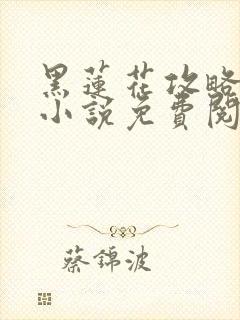 黑蓮花攻略
小說免費閱
蔡錦波